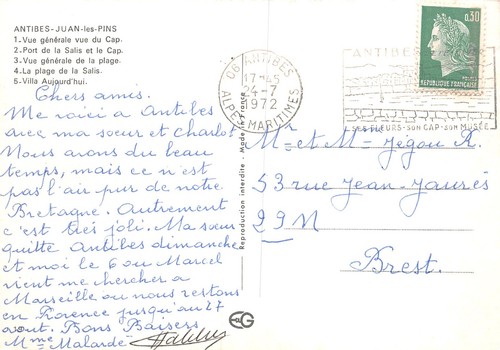 ANTIBES-JUAN-les-PINS
1.-Vue générale vue du Cap.
2.-Port de la Salis et le Cap.
3.-Vue générale de la plage.
4.-La plage de la Salis.
5.-Villa Aujourd'hui.
Chers amis.
Me voici a Antibes
avec ma soeur et charlot
Nous avons du beau
temps, mais ce n est
pas l'air pur de notre
Bretagne. Autrement
c'est très joli. Ma soeur
quitte Antibes dimanche
et moi le 6 ou Marcel
vient me chercher a
Marseille ou nous restons
en jusqu'au 27
aout. Bons Baisers
Mme Malardé
Reproduction interdite - Made in France
0,30
REPUBLIQUE FRANÇAISE
06 ANTIBES
17H45
24-7
1972
ALPES-MARITIMES
ANTIBES
SES FLEURS-SON CAP-SON MUSÉE
Mr et Mme Jégou R.
53 rue Jean-Jaurès
29N
Brest.